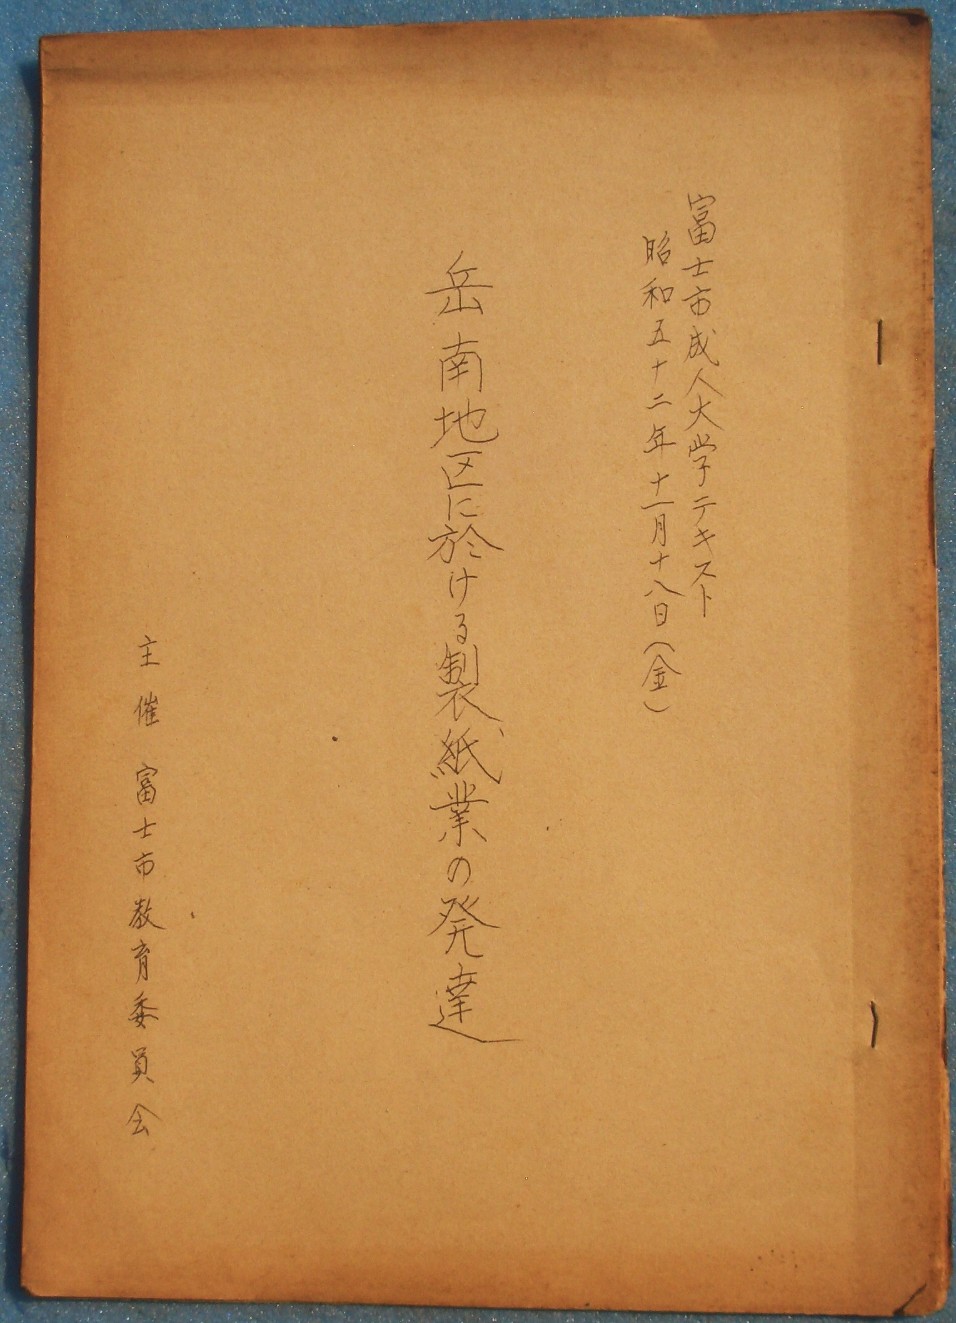 富士市成人大学テキスト
昭和五十二年十一月十八日(金)
岳南地区に於ける製紙業の発達
主催 富士市教育委員会